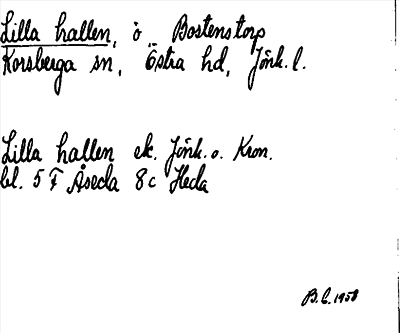 Lilla hallen, ö Bostenstorp
Korsberga sn, Östra hd, Jönk. l.
Lilla hallen ek. Jönk. o. Kron.
bl. 5 F Åseda 8c Heda
B.C. 1958